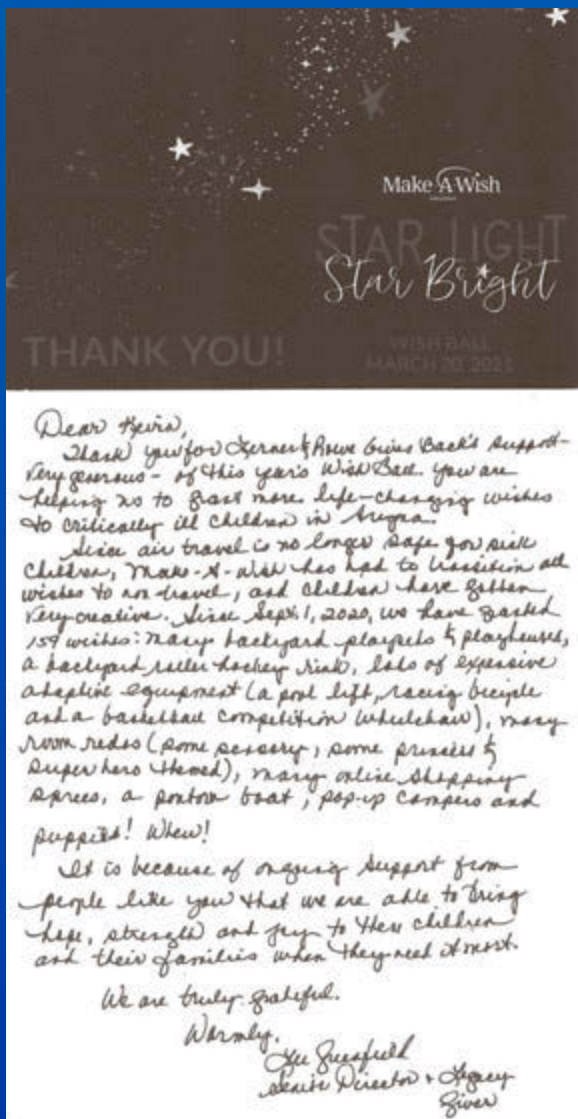 Make A Wish
STAR LIGHT
Star Bright
THANK YOU!
WISH BALL
MARCH 20, 2021
Dear Kevin,
Thank you for Lerner & Rowe Gives Back's support -
very generous - of this year's Wish Ball. You are
helping us to grant more life-changing wishes
to critically ill children in Arizona.
Since air travel is no longer safe for sick
children, Make-A-Wish has had to transition all
wishes to non travel, and children have gotten
very creative. Since Sept. 1, 2020, we have granted
159 wishes: many backyard playsets & playhouses,
a backyard roller hockey rink, lots of expensive
adaptive equipment (a pool lift, racing bicycle
and a basketball competition wheelchair), many
room redos (some sensory, some princess &
superhero themed), many online shopping
sprees, a pontoon boat, pop-up campers and
puppies! Whew!
It is because of ongoing support from
people like you that we are able to bring
hope, strength and joy to these children
and their families when they need it most.
We are truly grateful.
Warmly,
Greenfield
Senior Director + Legacy
Giver